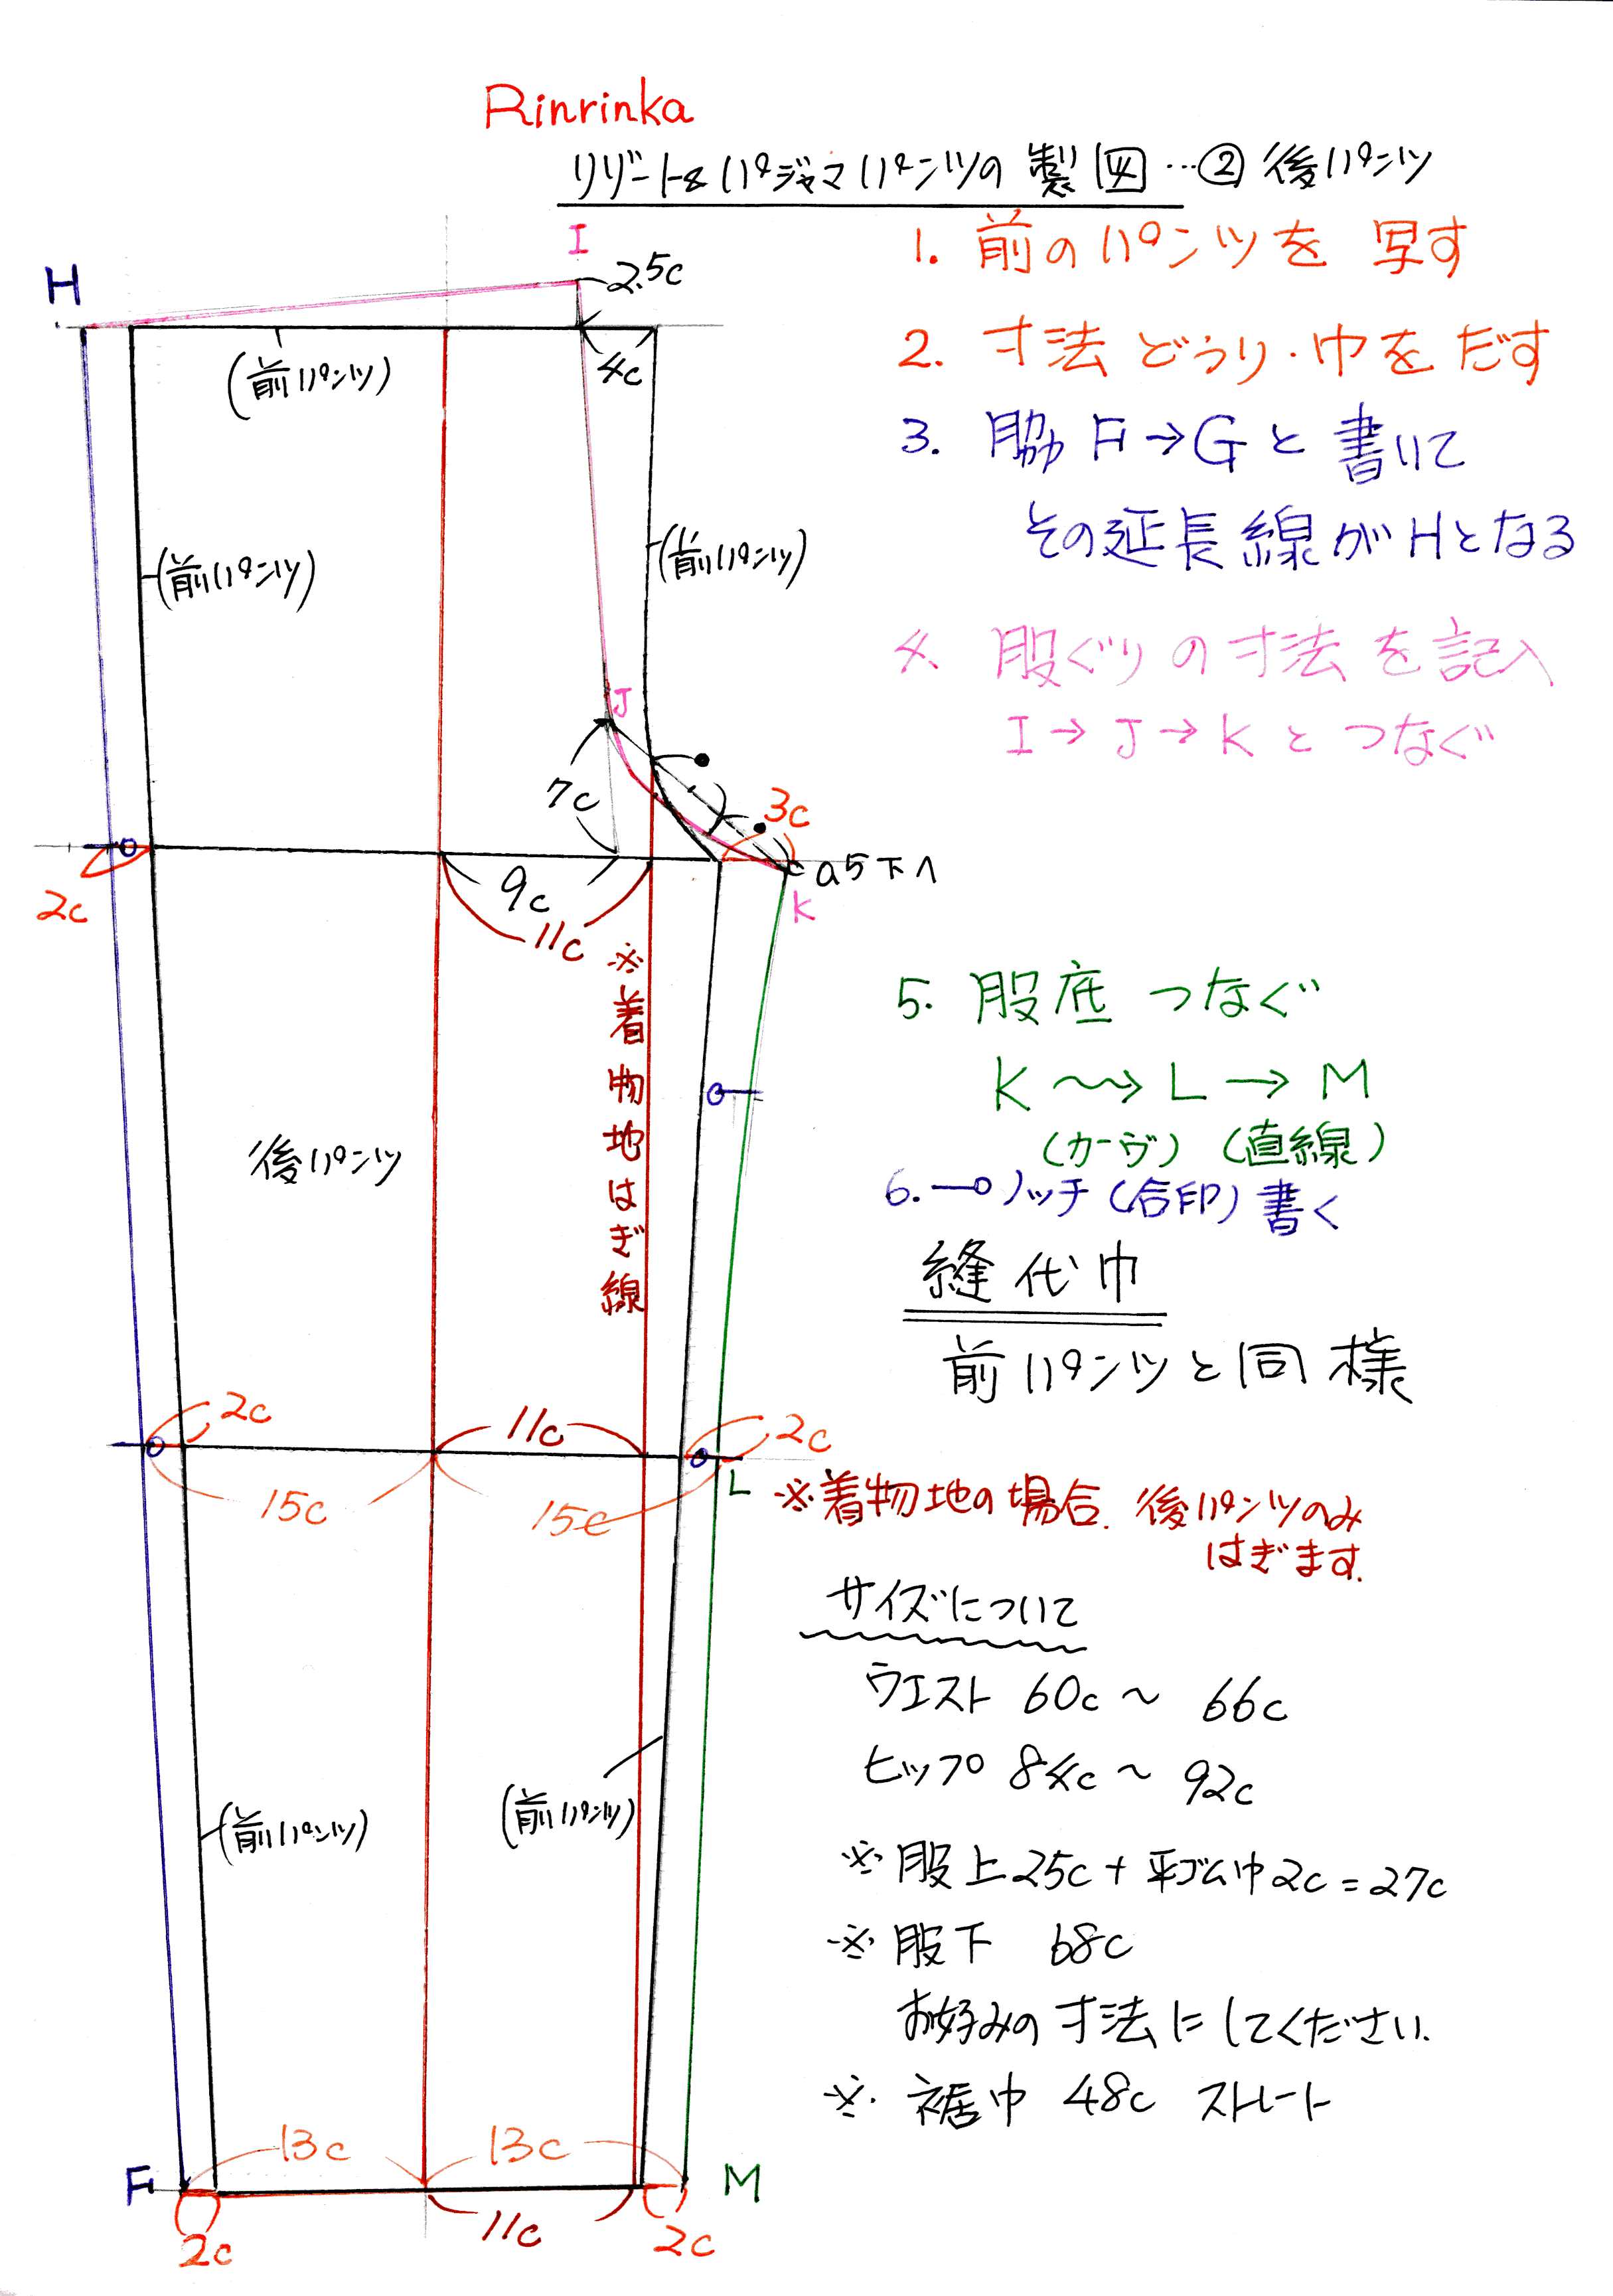 Rinrinka
リゾート&パジャマパンツの製図…② 後パンツ
I
H
2.5c
4c
(前パンツ)
(前パンツ)
(前パンツ)
J
7c
3c
2c
9c
11c
0.5下へ
K
※着物地はぎ線
後パンツ
2c
11c
2c
15c
15c
L
(前パンツ)
(前パンツ)
13c
13c
F
M
2c
11c
2c
1. 前のパンツを写す
2. 寸法どうり・巾をだす
3. 脇 F→Gと書いて
その延長線がHとなる
4. 股ぐりの寸法を記入
I→J→Kとつなぐ
5. 股底つなぐ
K〜→L→M
(カーヴ) (直線)
6. ノッチ(合印)書く
縫代巾
前パンツと同様
※着物地の場合、後パンツのみ
はぎます.
サイズについて
ウエスト 60c〜66c
ヒップ 84c〜92c
※股上25c+平ゴム巾2c=27c
※股下 68c
お好みの寸法にしてください.
※裾巾 48c ストレート